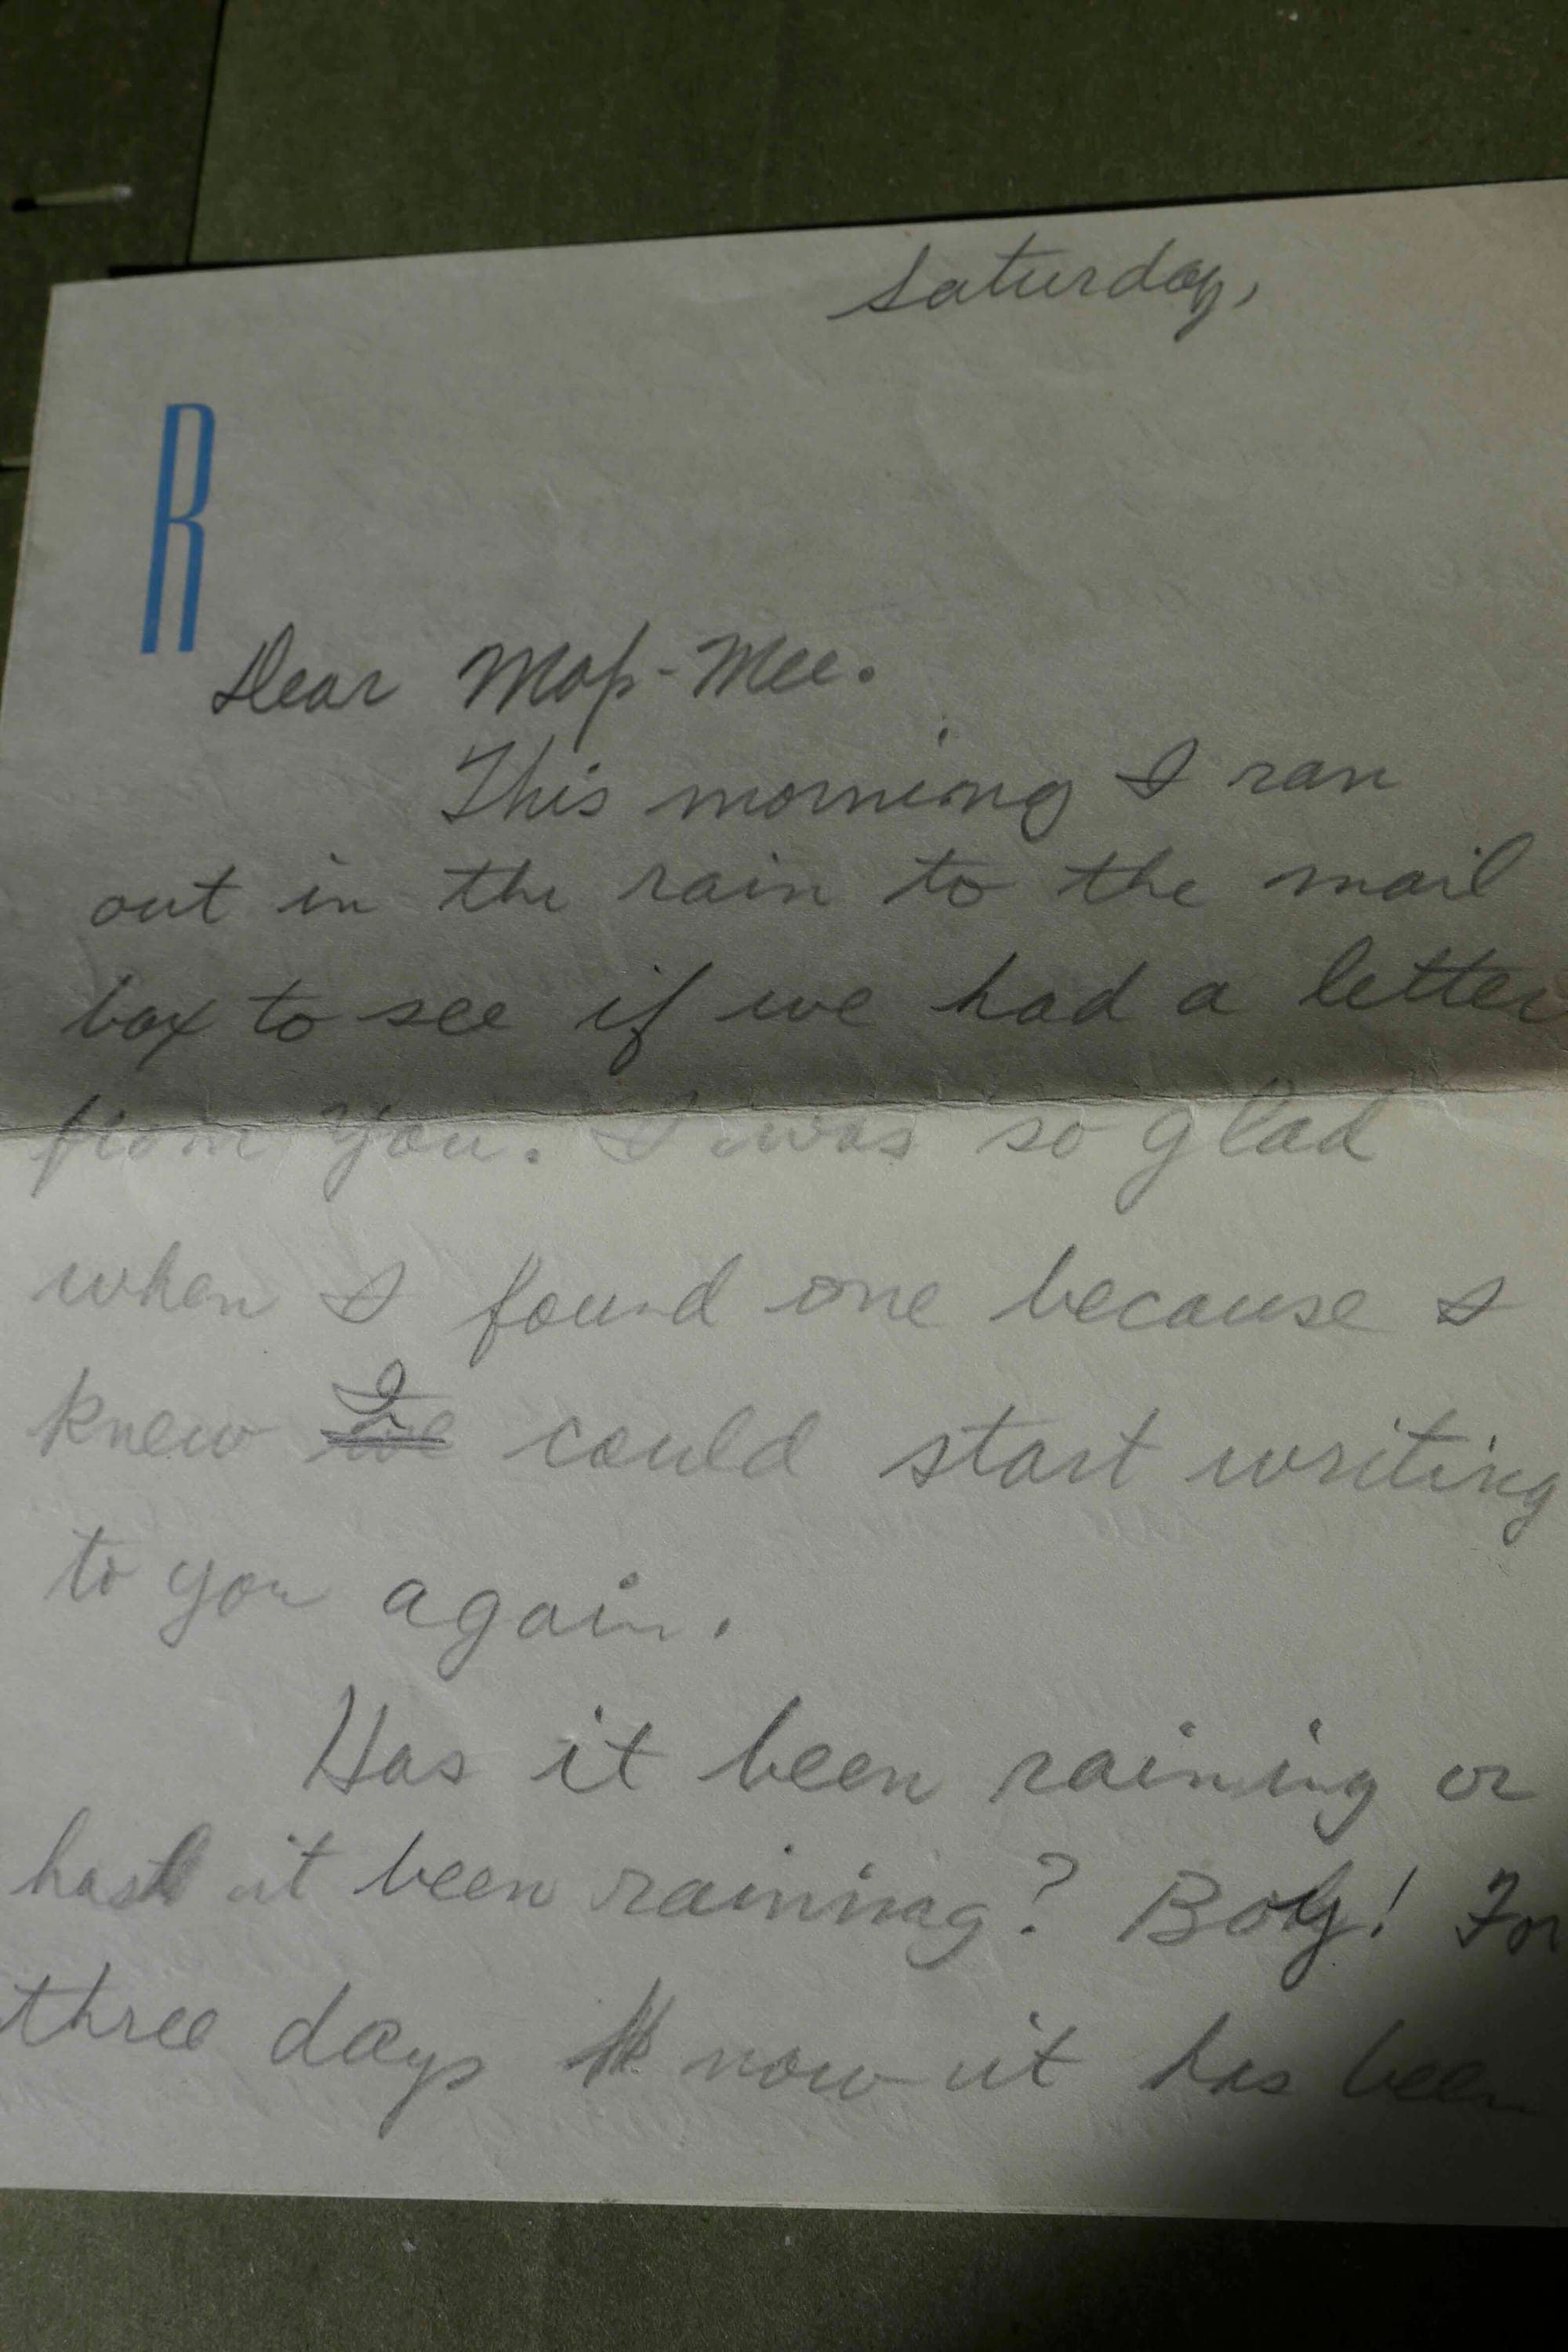 Saturday,
R
Dear Mop-Mee.
This morning I ran
out in the rain to the mail
box to see if we had a letter
from you. I was so glad
when I found one because I
knew I could start writing
to you again.
Has it been raining or
has it been raining? Boy! For
three days now it has been